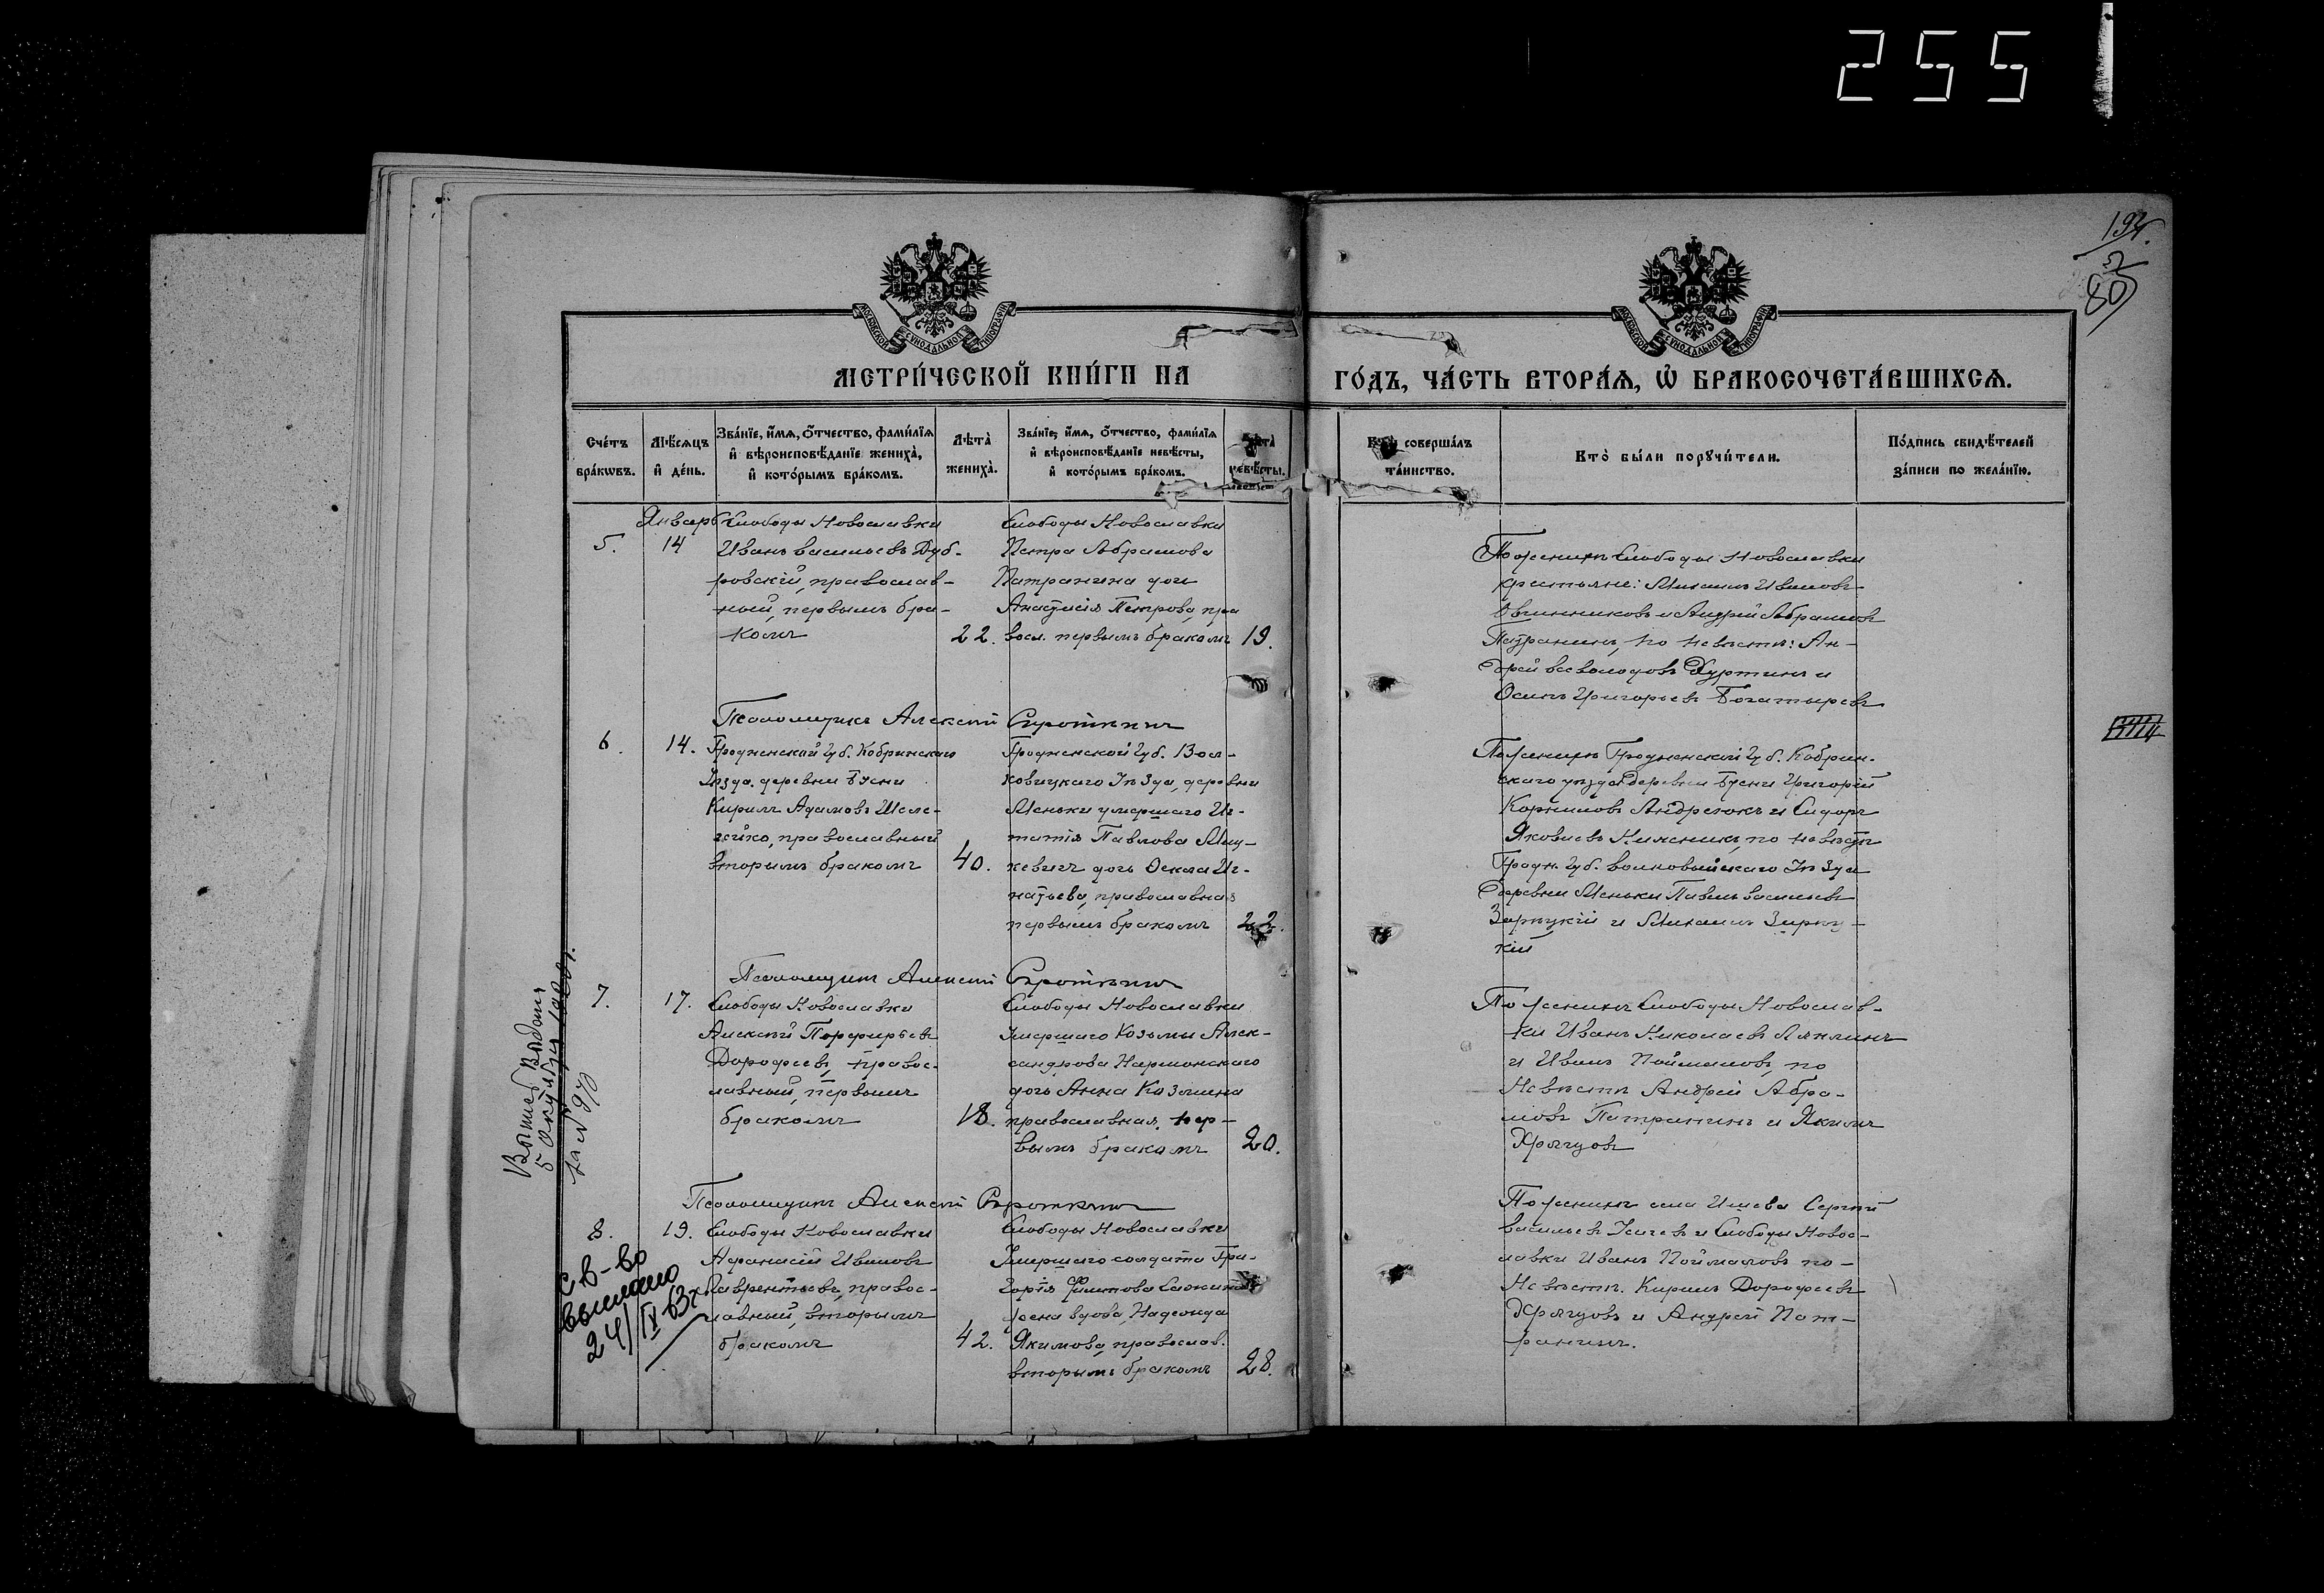 255
194.
80
МОСКОВСКОЙ СУНОДАЛЬНОЙ ТИПОГРАФІИ
МОСКОВСКОЙ СУНОДАЛЬНОЙ ТИПОГРАФІИ
МЕТРИ́ЧЕСКОЙ КНИ́ГИ НА
ГО́ДЪ, ЧА́СТЬ ВТОРА́Ѧ, Ѡ҆ БРАКОСОЧЕТА́ВШИХСѦ.
Сче́тъ бра́кѡвъ.
Мѣ́сѧцъ и҆ де́нь.
Зва́нїе, и҆́мѧ, ѻ҆́тчество, фами́лїѧ
и҆ вѣроисповѣ́данїе жениха̀,
и҆ кото́рымъ бра́комъ.
Лѣта̀ жениха̀.
Зва́нїе, и҆́мѧ, ѻ҆́тчество, фами́лїѧ
и҆ вѣроисповѣ́данїе невѣ́сты,
и҆ кото́рымъ бра́комъ.
Лѣта̀ невѣ́сты.
Кто̀ соверша́лъ та́инство.
Кто̀ бы́ли порꙋчи́тели.
По́дпись свидѣ́телей
за́писи по жела́нїю.
Январь
5.
14
Слободы Новославки
Иванъ Васильевъ Дуб-
ровскій, православ-
ный, первымъ бра-
комъ
22.
Слободы Новославки
Петра Абрамова
Патранина дочь
Анастасія Петрова, пра
восл. первымъ бракомъ
19.
По женихѣ Слободы Новославки
крестьяне: Михаилъ Ивановъ
Овчинниковъ и Андрей Абрамовъ
Патранинъ, по невѣстѣ: Ан-
дрей Всеволодовъ Куртинъ и
Осипъ Григорьевъ Богатыревъ
Псаломщикъ Алексей Сироткинъ
6.
14.
Гродненской губ. Кобринскаго
Уѣзда. деревни Бусни
Кирилъ Адамовъ Шеле-
гейко, православный
вторымъ бракомъ
40.
Гродненской губ. Вол-
ковицкаго Уѣзда, деревни
Меньки умершаго Иг-
натія Павлова Миц-
кевичъ дочь Фекла Иг-
натьева, православная
первымъ бракомъ
22.
По женихѣ Гродненской губ. Кобрин-
скаго уѣзда деревни Бусни Григорій
Корниловъ Андреюкъ и Сидоръ
Яковлевъ Никсникъ, по невѣстѣ
Гродн. губ. Волковыйскаго Уѣзда
деревни Меньки Павелъ Васильевъ
Зарѣцкій и Михаилъ Зарѣц-
кій
Псаломщикъ Алексей Сироткинъ
7.
17.
Слободы Новославки
Алексѣй Порфирьевъ
Дорофеевъ, правос-
лавный, первымъ
бракомъ
18.
Слободы Новославки
Умершаго Козьмы Алек-
сандрова Нармонскаго
дочь Анна Козмина
православная, пер-
вымъ бракомъ
20.
По женихѣ Слободы Новослав-
ки Иванъ Николаевъ Лямлинъ
и Иванъ Поймановъ, по
Невѣстѣ Андрей Абра-
мовъ Патранинъ и Якимъ
Хрящовъ
Выпись Выдана
за №
Псаломщикъ Алексей Сироткинъ
8.
19.
Слободы Новославки
Афанасій Ивановъ
Лаврентьевъ, правос-
лавный, вторымъ
бракомъ
42.
Слободы Новославки
Умершаго солдата Гри-
горія Филипова
жена вдова, Надежда
Якимова, православ.
вторымъ бракомъ
28.
По женихѣ села Ишева Сергей
Васильевъ Усачевъ и Слободы Новос-
лавки Иванъ Поймановъ по-
Невѣстѣ. Кирилъ Дорофеевъ
Хрящовъ и Андрей Пат-
ранинъ.
СВ-во
выслано
24/IV 63г